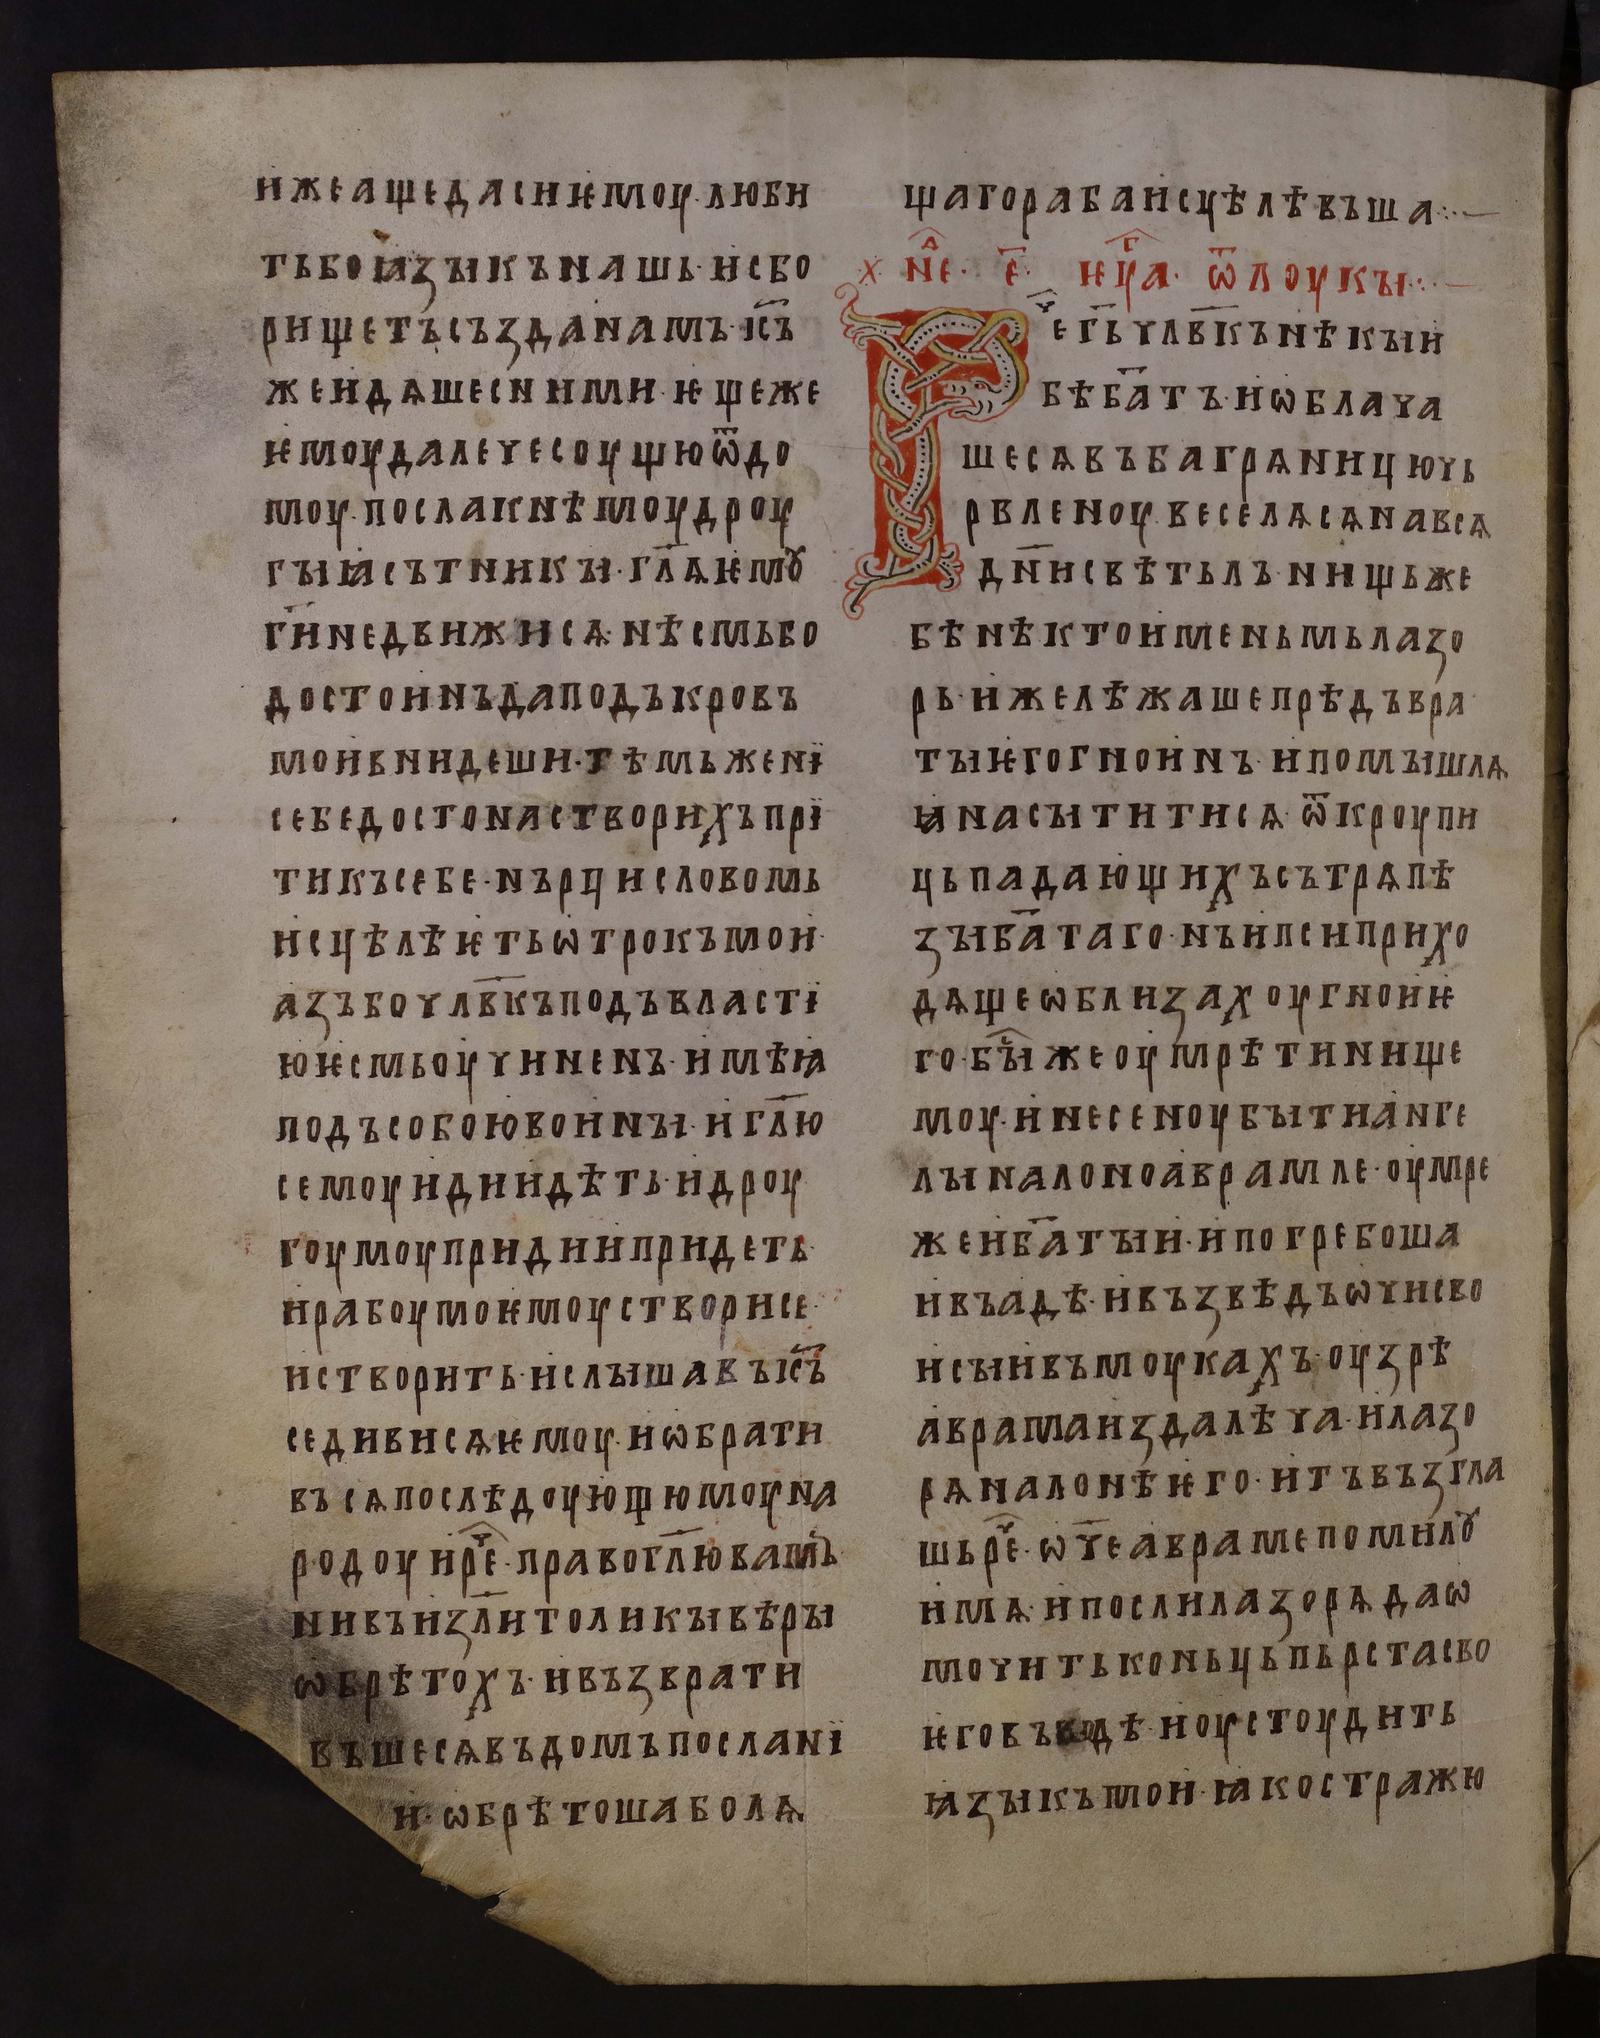 ижеащедасиѥмоу·люби
тьбоꙗзꙑкънашь·исьбо
рищетъсъзданамъ·іс҃ъ
жеидꙗшеснимиѥщеже
ѥмоудалечесоущюѿдо
моу·послакнѣмоудроу
гꙑꙗсътникꙑ·гл҃ѧѥмꙋ
ги҃недвижисѧ·нѣсмьбо
достоинъдаподъкровъ
моивнидеши·тѣмьжені
себедостонастворихъпрі
тикъсебе·нърцисловомь
исцѣлѣѥтьѡтрокъмои·
азъбочлв҃къподъвласті
юѥсмьоучиненъ·имѣꙗ
подъсобоювоинꙑ·игл҃ю
семоуидиидѣть·идроу
гоумоупридиипридеть·
ирабоумоѥмоустворисе·
истворить·ислꙑшавъіс҃ъ
седивисѧѥмоу·иѡбрати
въсѧпослѣдоующюмоуна
родоуирⷱ҇е·правогл҃ювамъ·
нивъизл҃итоликꙑвѣрꙑ
ѡбрѣтохъ·ивъзврати
въшесѧвъдомъпослані
и·ѡбрѣтошабола
щагорабаисцѣлѣвъша⁘—
х нⷣе· е҃· ѥуⷢ҇а· ѿлоукꙑ⁘—
Рⷱ҇егь҃члв҃кънѣкꙑи
бѣба҃тъ·иѡблача
шесѧвъбагрѧницючь
рвленоу·веселѧсѧнавсѧ
дн҃исвѣтьлъ·нищьже
бѣнѣктоименьмьлазо
рь·ижележашепрѣдъвра
тꙑѥгогноинъ·ипомꙑшлѧ
ꙗнасꙑтитисѧ·ѿкроупи
цьпадающихъсътрѧпѣ
зꙑба҃таго·нъипсиприхо
дѧщеѡблизахоугноиѥ
го·бꙑⷭ҇жеоумрѣтинище
моу·инесеноубꙑтиаⷩ҇ге
лꙑналоноаврамле·оумре
жеиба҃тꙑи·ипогребоша
ивъадѣ·ивъзвѣдъѡчисво
исꙑивъмоукахъ·оузрѣ
авраамаиздалѣча·илазо
рѧналонѣѥго·итъвъзгла
шьрⷱ҇е·ѡч҃еаврамепомилꙋ
имѧ·ипослилазорѧдаѡ
мочитьконьцьпьрстасво
ѥговъводѣ·иоустоудить
ꙗзꙑкъмои·ꙗкостражю